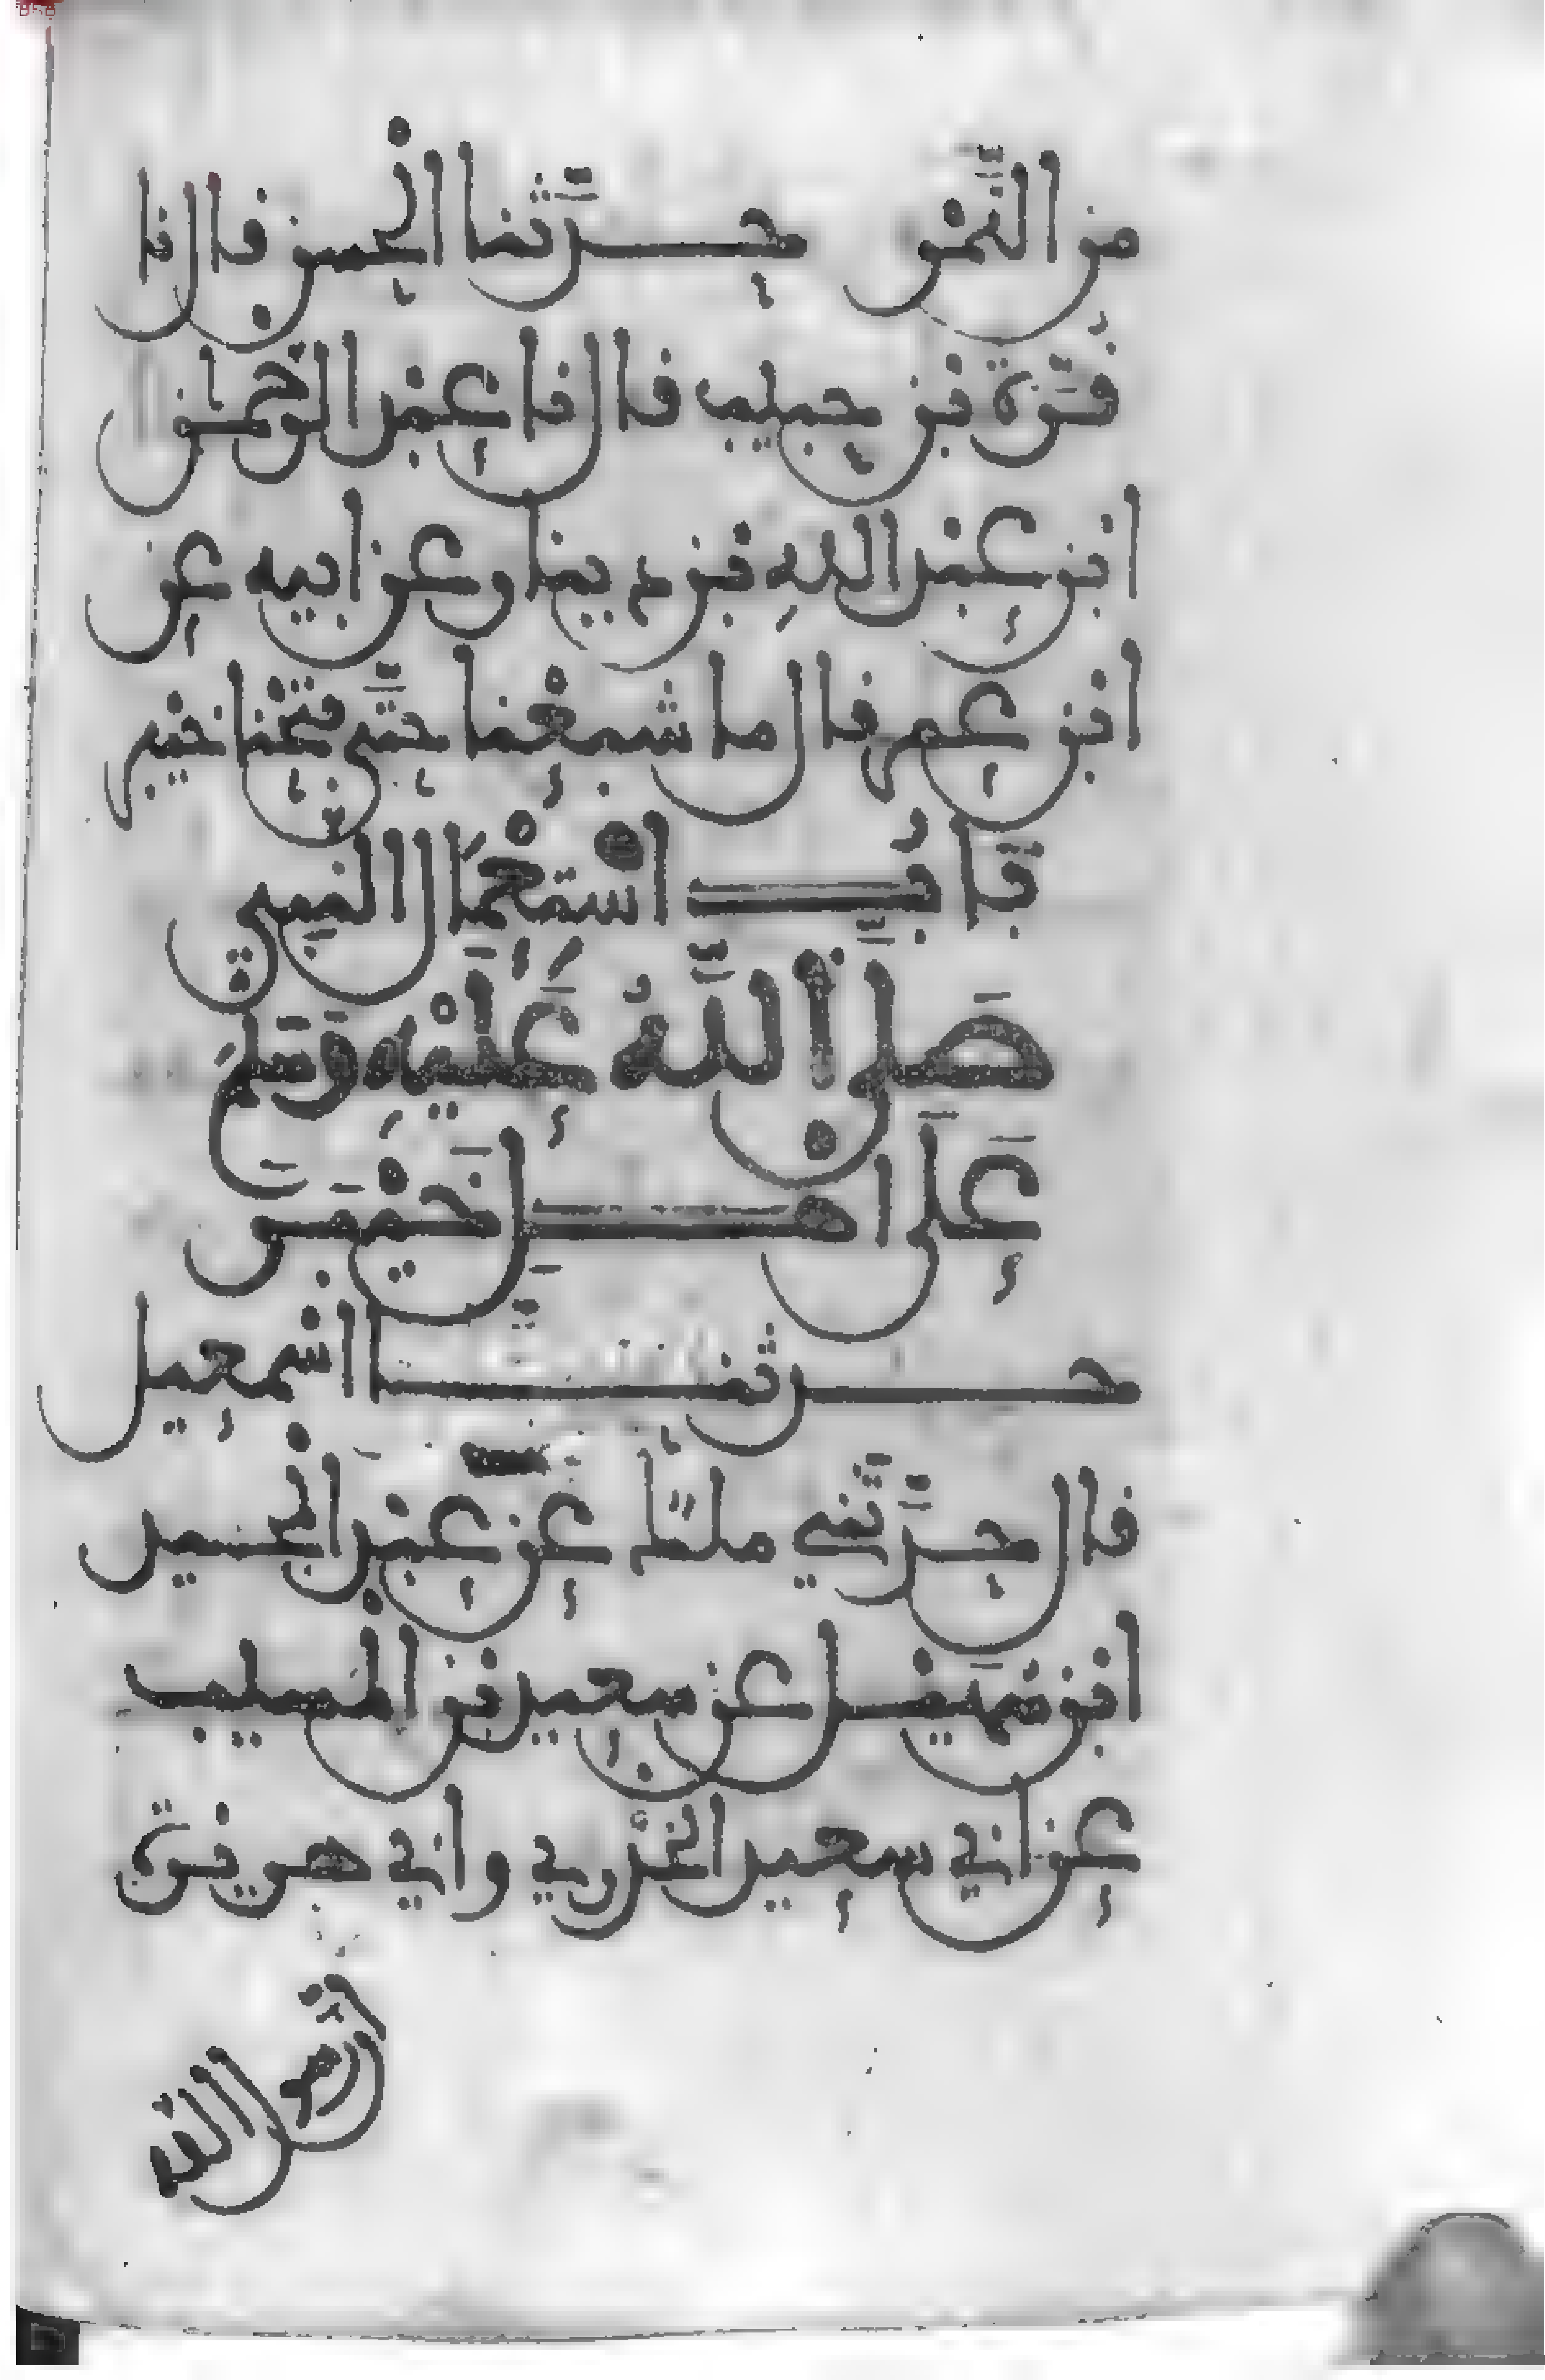 من التَّمْر حدَّثنا الْحسن قال نا
قرّة بن حبيب قال نا عبد الرحمن
ابن عبد اللهِ بن دينار عن ابيه عن
ابن عمر قال ما شبعْنا حتَّى فتحْنا خيبر
بَابُ اسْتعْمَال النبيِّ
صَلَّى اللَّهُ عَلَيْهِ وَسَلَّمَ
عَلَى اهلِ خَيْبَرَ
حدثنا اسمعيل
قال حدَّثَني ملكٌ عن عبد الْحميد
ابن سُهَيل عن سعيد بن الْمسيب
عن ابي سعيد الخدْري وابي هريرة
أن رسول الله